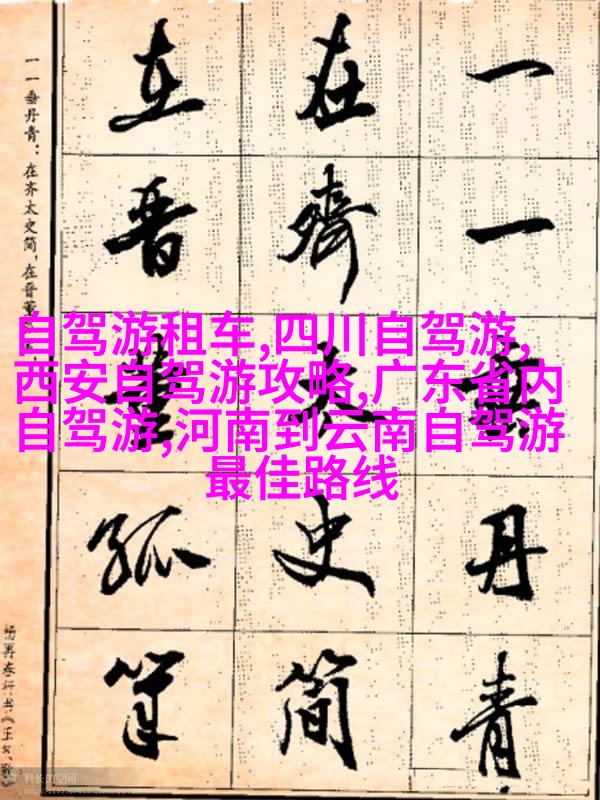 一一垂丹青
在齊太史简
在晋董狐筆
一一垂丹青：在齐太史简，在晋董
杨再春行书《正气
自驾游租车,四川自驾游,
西安自驾游攻略,广东省内
自驾游,河南到云南自驾游
最佳路线
科长的空间